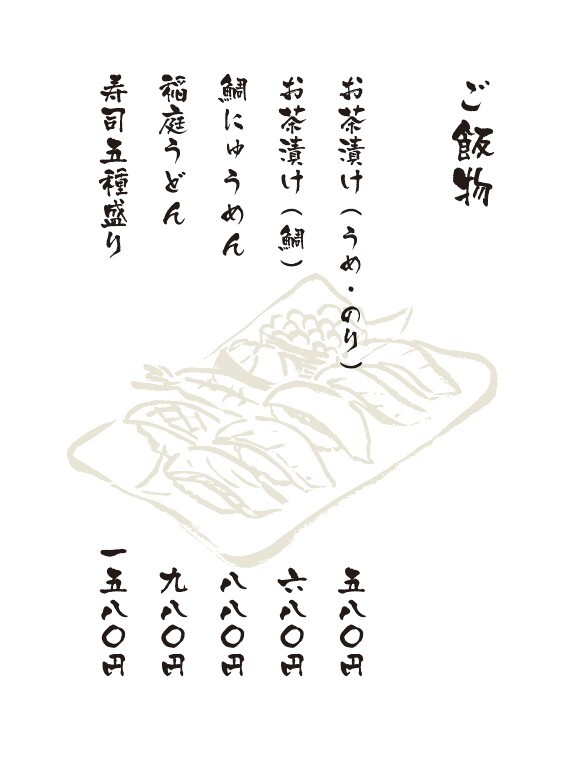 ご飯物
お茶漬け(うめ・のり)
五八〇円
お茶漬け(鯛)
六八〇円
鯛にゅうめん
八八〇円
稲庭うどん
九八〇円
寿司五種盛り
一五八〇円